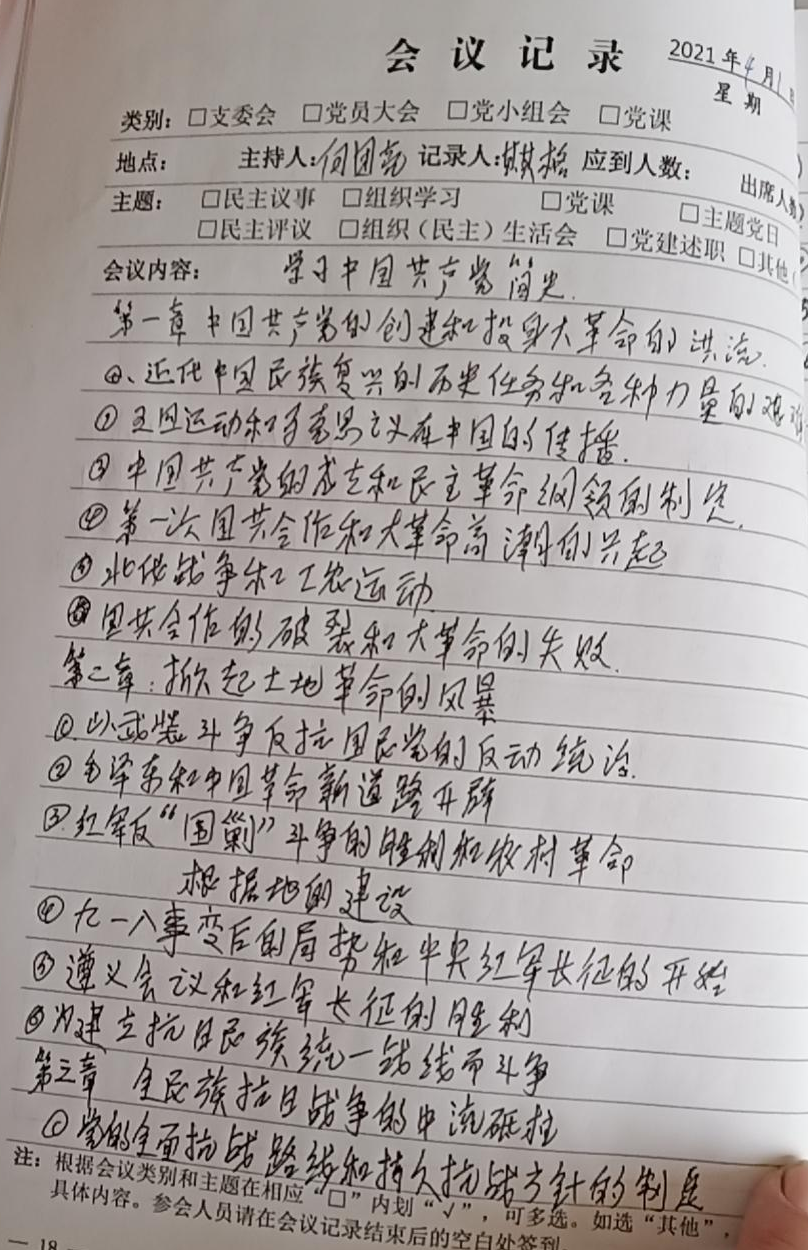 会议记录
2021年4月1日
星期
类别：□支委会 □党员大会 □党小组会 □党课
地点： 主持人： 记录人： 应到人数： 出席人数
主题： □民主议事 □组织学习 □党课 □主题党日
□民主评议 □组织（民主）生活会 □党建述职 □其他（
会议内容： 学习中国共产党简史.
第一章 中国共产党的创建和投身大革命的洪流.
、近代中国民族复兴的历史任务和各种力量的艰难
① 五四运动和马克思主义在中国的传播.
③ 中国共产党的成立和民主革命纲领的制定.
④ 第一次国共合作和大革命高潮的兴起
⑤ 北伐战争和工农运动.
⑥ 国共合作的破裂和大革命的失败.
第二章：掀起土地革命的风暴
①.以武装斗争反抗国民党的反动统治.
② 毛泽东和中国革命新道路开辟
③.红军反“围剿”斗争的胜利和农村革命
根据地的建设
④ 九一八事变后的局势和中央红军长征的开始
⑤ 遵义会议和红军长征的胜利
⑥ 为建立抗日民族统一战线而斗争
第三章 全民族抗日战争的中流砥柱
① 党的全面抗战路线和持久抗战方针的制定
注：根据会议类别和主题在相应“□”内划“√”，可多选。如选“其他”，
具体内容。参会人员请在会议记录结束后的空白处签到
— 18